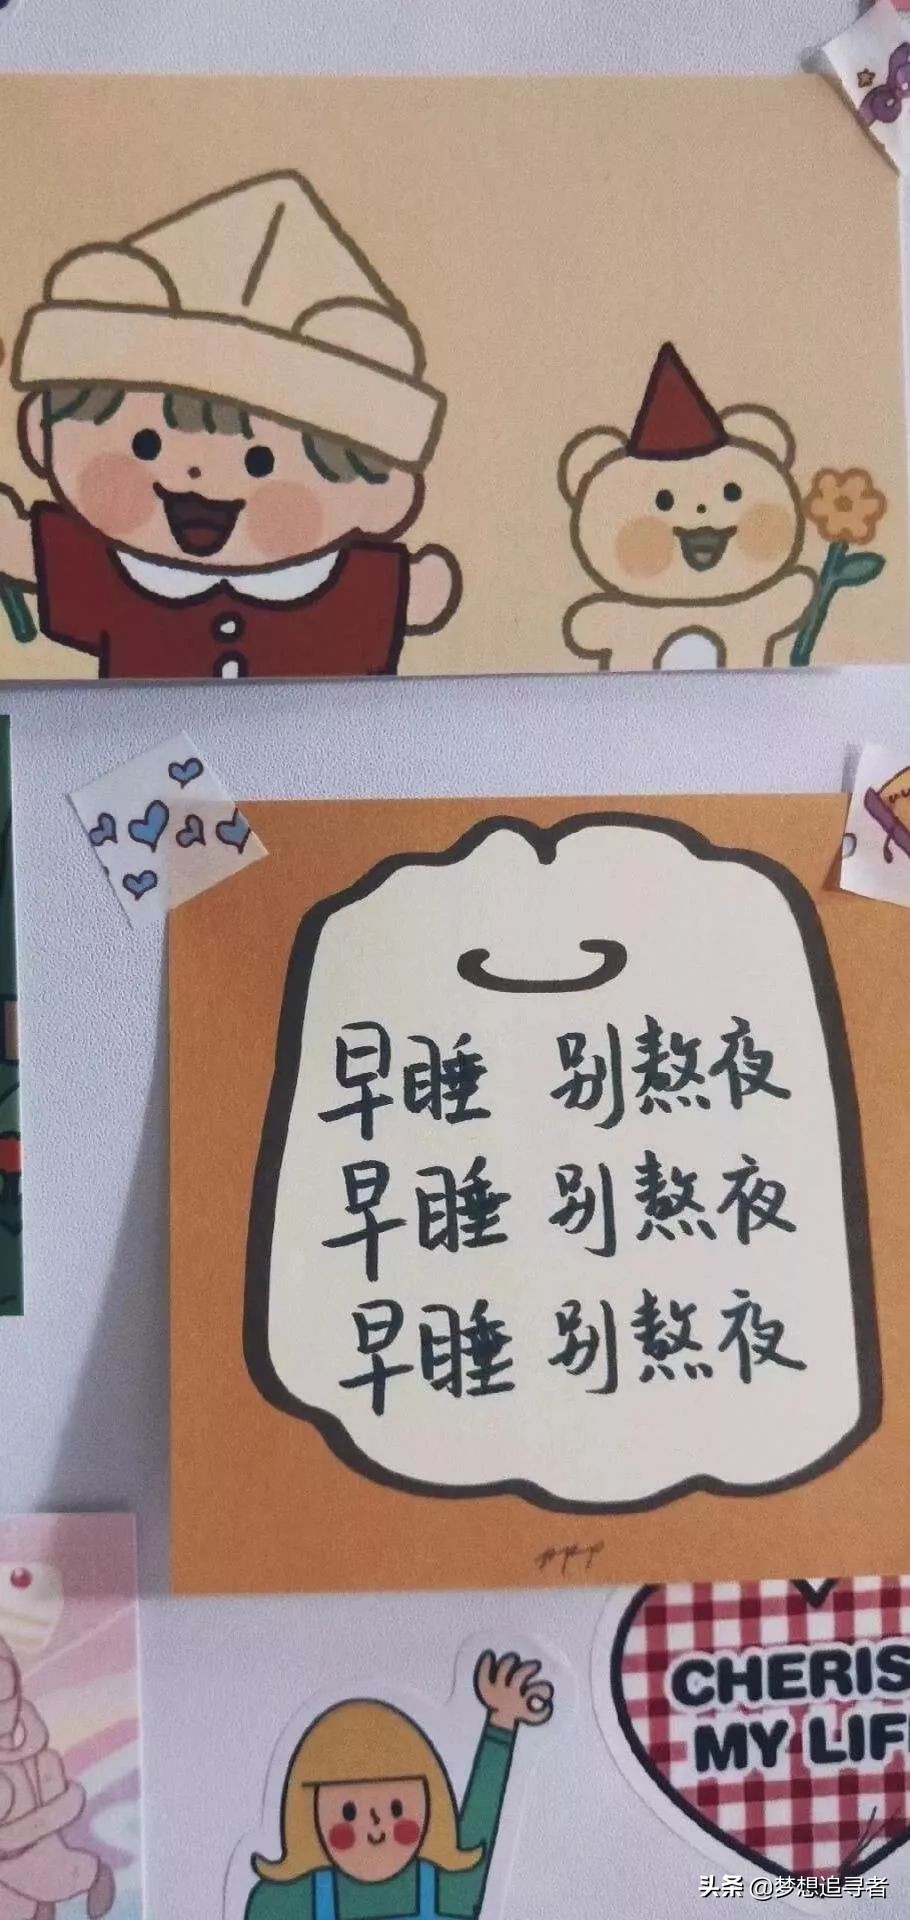 早睡 别熬夜
早睡 别熬夜
早睡 别熬夜
CHERIS
MY LIF
头条 @梦想追寻者